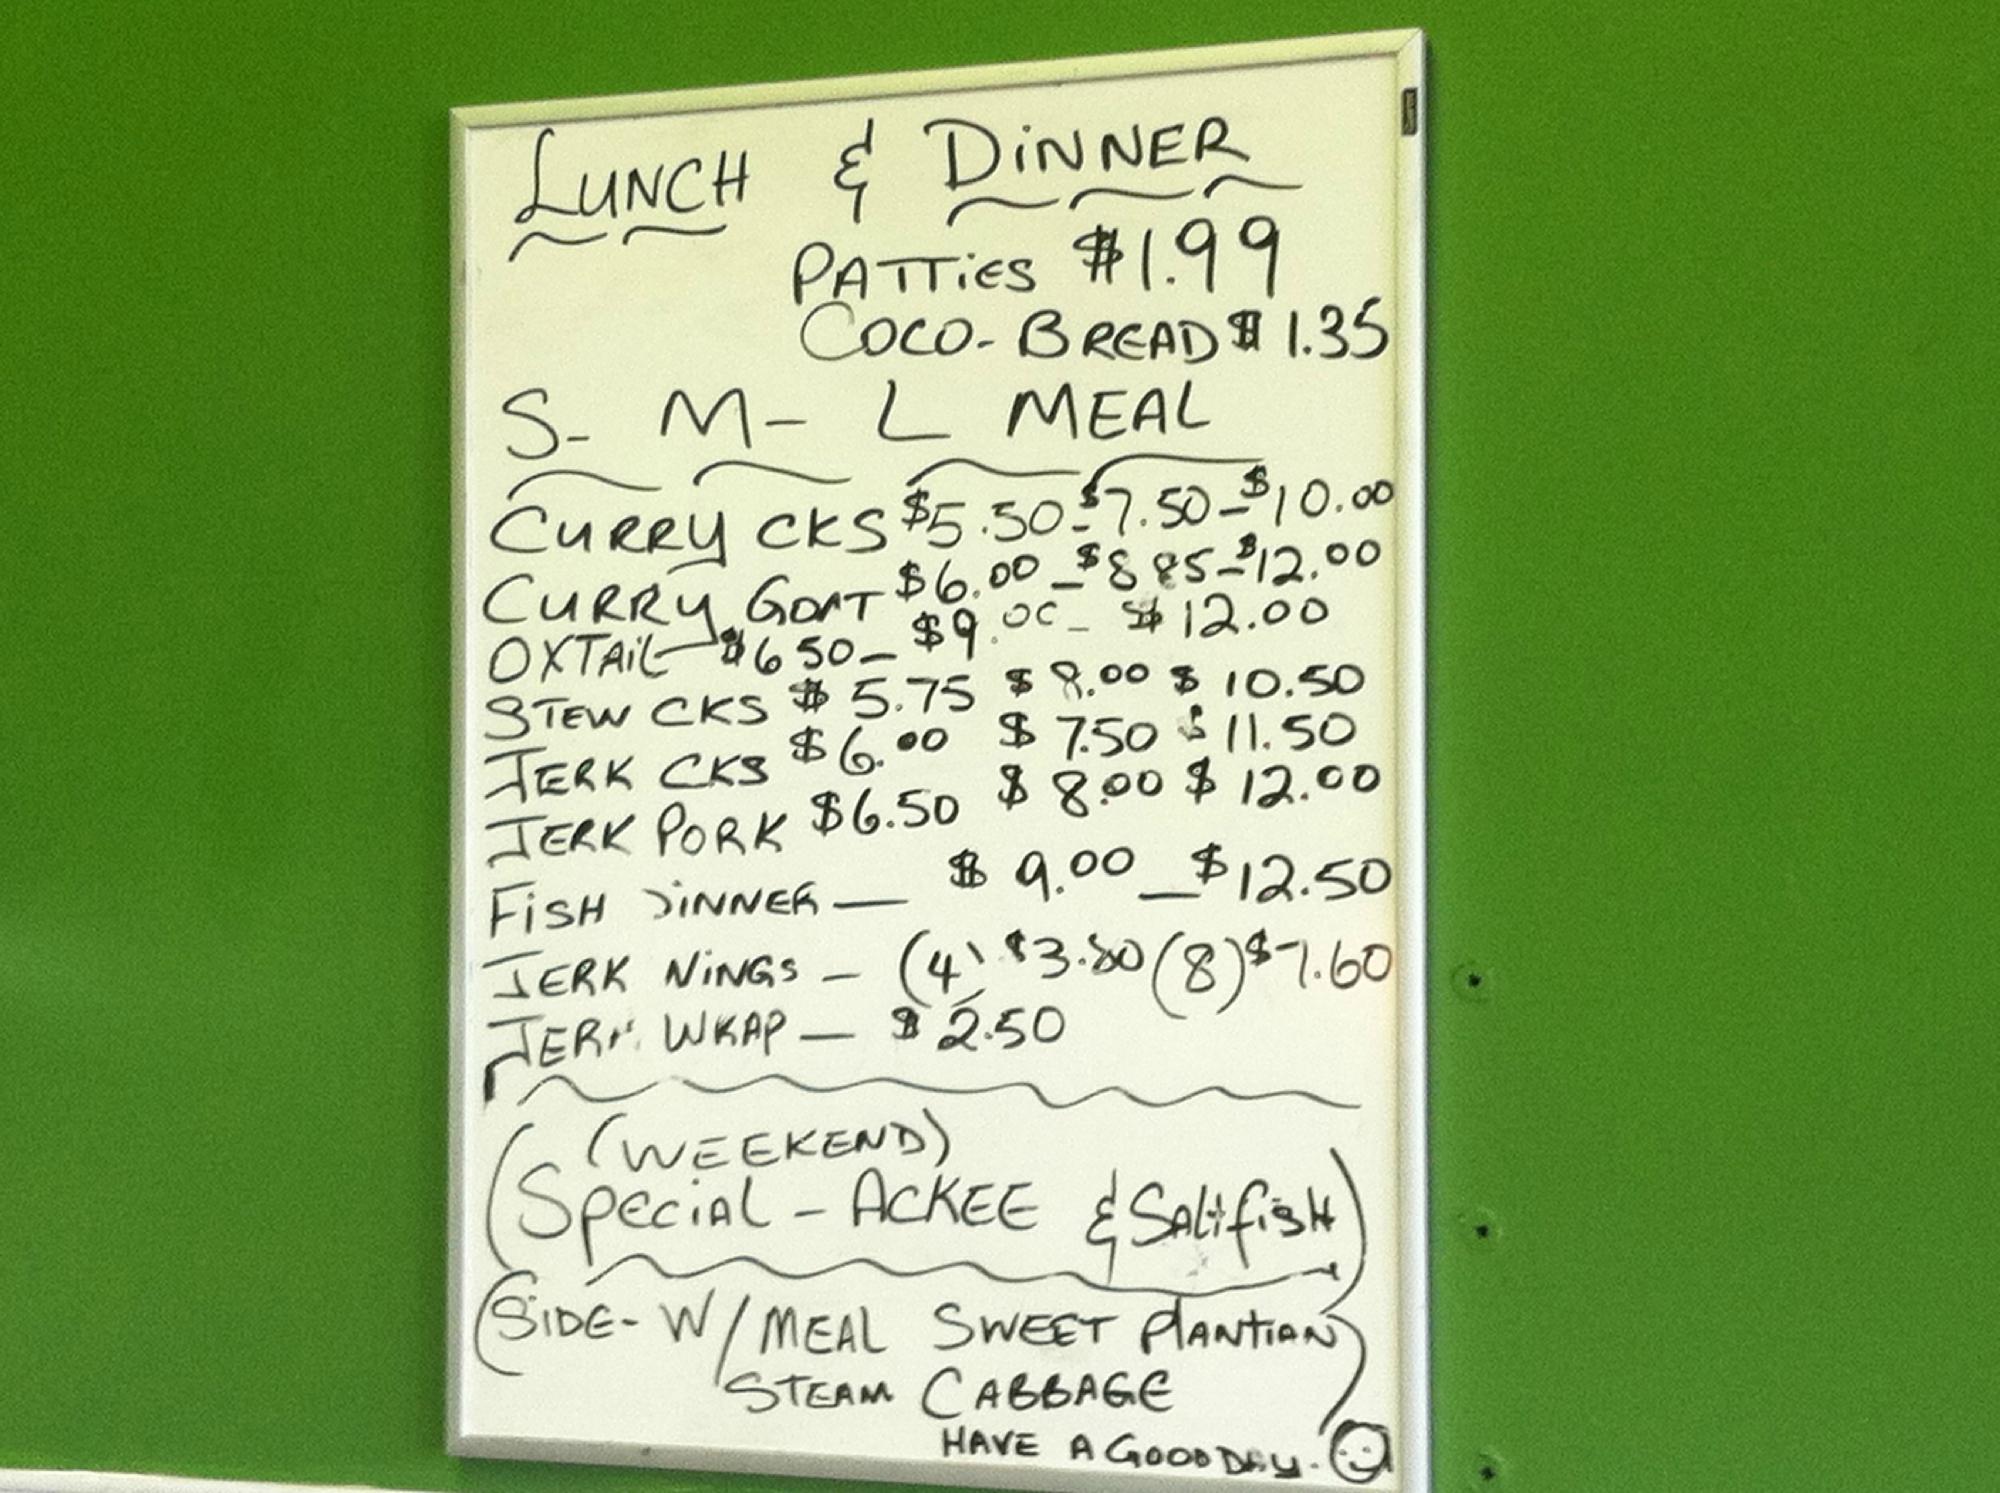 LUNCH & DINNER
PATTIES $1.99
COCO-BREAD $1.35
S- M- L MEAL
CURRY CKS $5.50-$7.50-$10.00
CURRY GOAT $6.00-$8 85-$12.00
OXTAIL-$6 50-$9.00- $12.00
STEW CKS $5.75 $8.00 $10.50
JERK CKS $6.00 $7.50 $11.50
JERK PORK $6.50 $8.00 $12.00
FISH DINNER- $9.00-$12.50
JERK WINGS - (4) $3.80 (8) $7.60
JERK WRAP - $2.50
(WEEKEND)
(SPECIAL - ACKEE & SALTFISH)
(SIDE- W/MEAL SWEET PLANTIAN
STEAM CABBAGE)
HAVE A GOOD DAY.